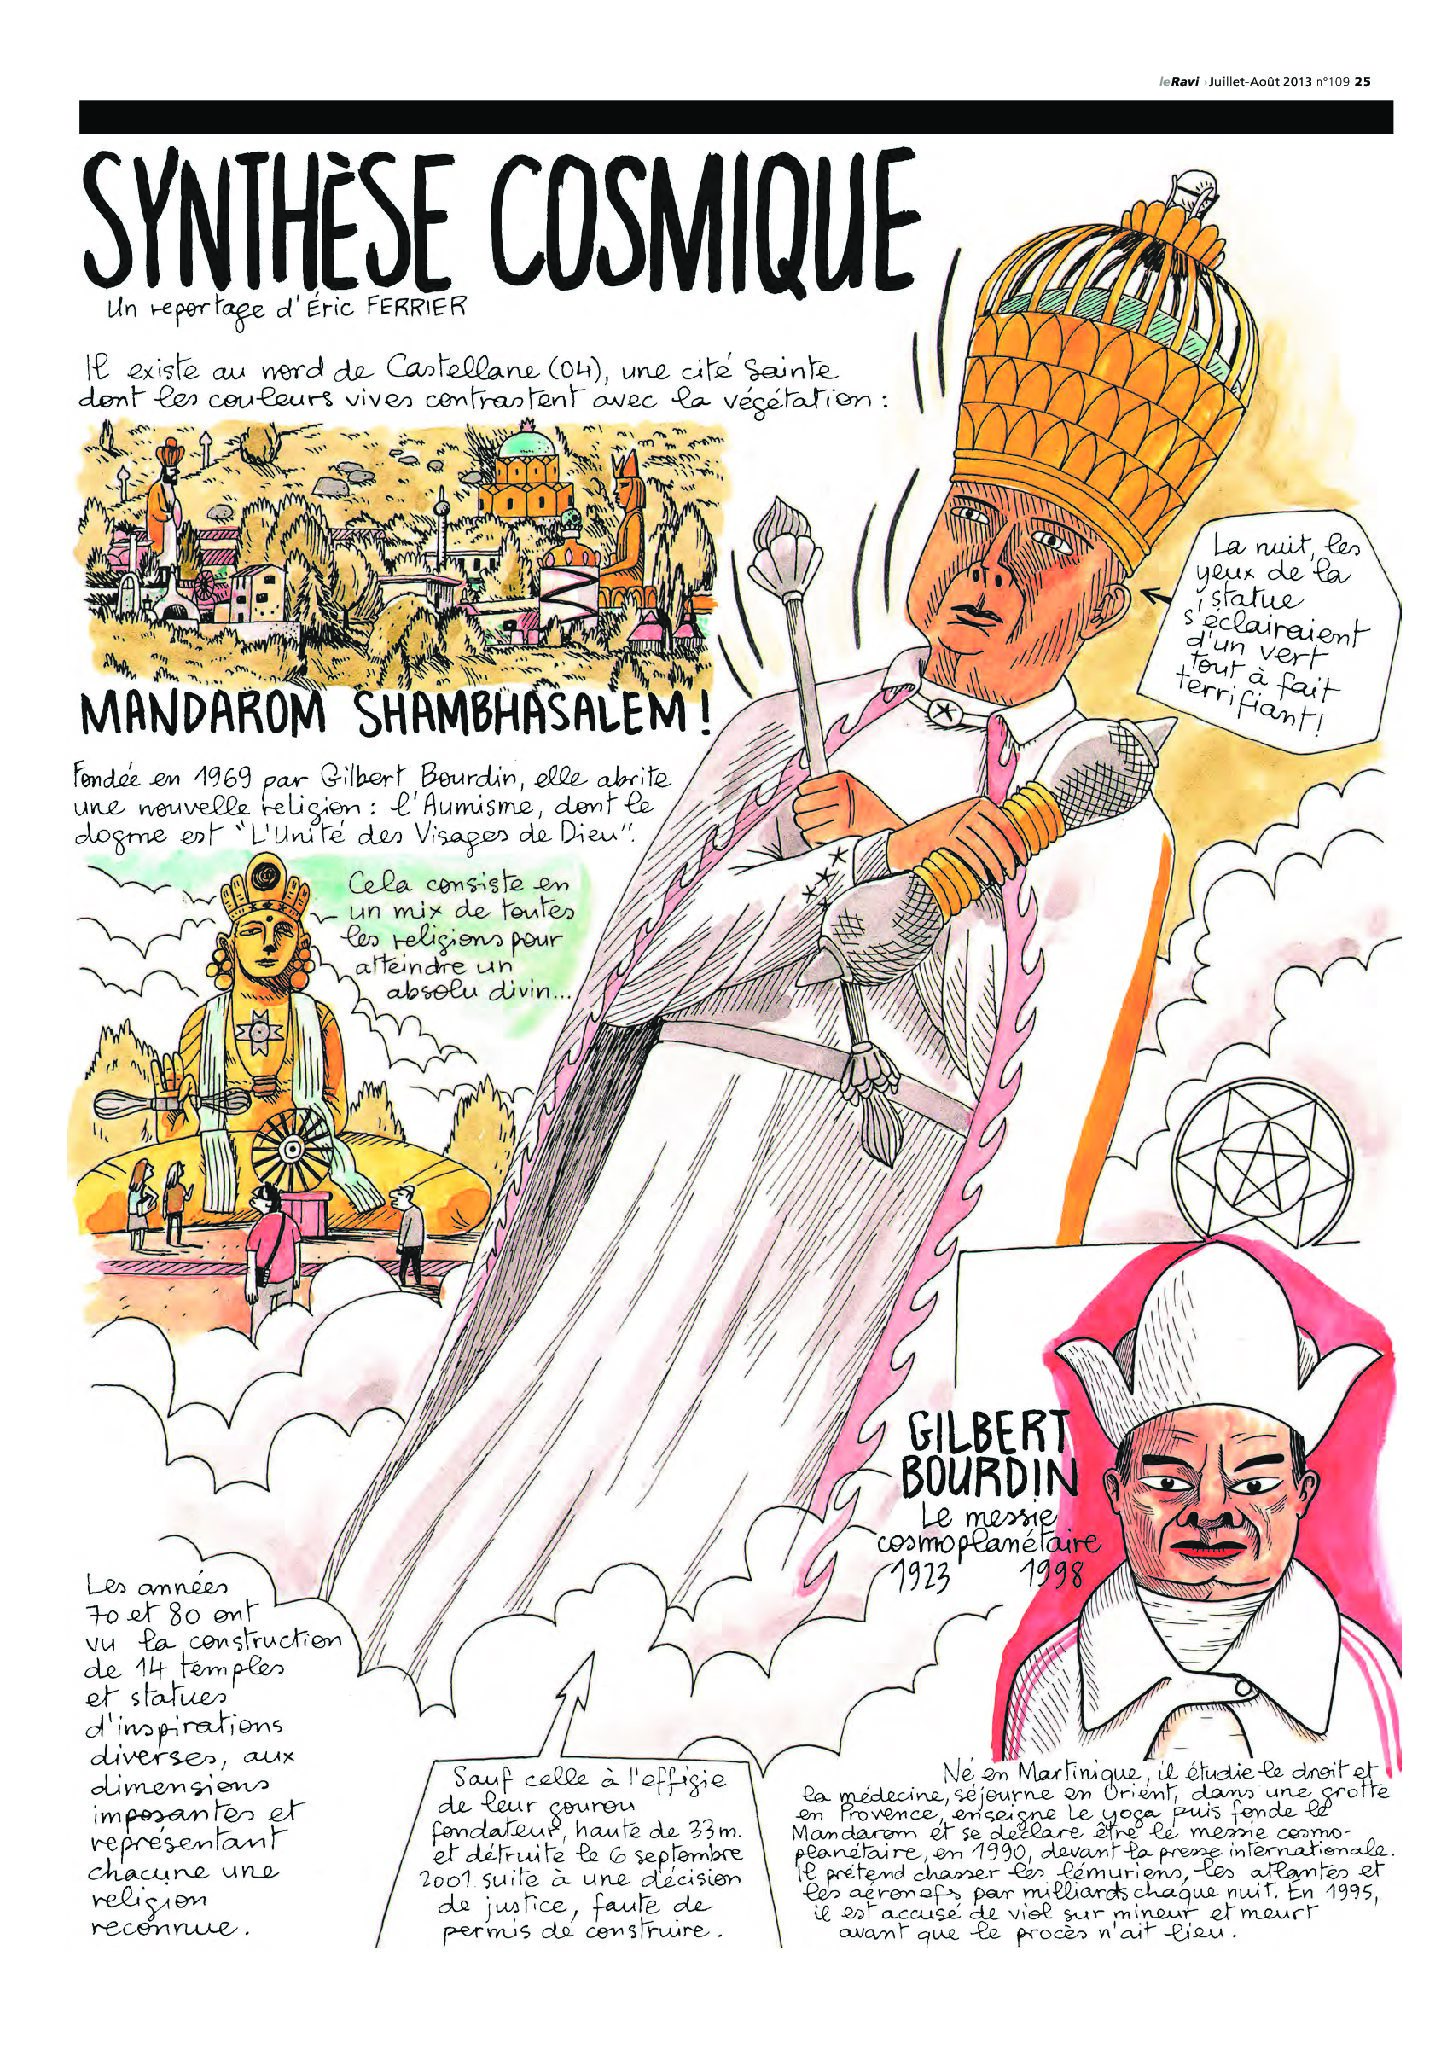 leRavi Juillet-Août 2013 n°109 25
SYNTHÈSE COSMIQUE
Un reportage d'Éric FERRIER
Il existe au nord de Castellane (04), une cité Sainte
dont les couleurs vives contrastent avec la végétation :
MANDAROM SHAMBHASALEM !
Fondée en 1969 par Gilbert Bourdin, elle abrite
une nouvelle religion : l'Aumisme, dont le
dogme est "L'Unité des Visages de Dieu".
Cela consiste en
un mix de toutes
les religions pour
atteindre un
absolu divin...
La nuit, les
yeux de la
statue
s'éclairaient
d'un vert
tout à fait
terrifiant !
GILBERT
BOURDIN
Le messie
cosmoplanétaire
1923 1998
Les années
70 et 80 ont
vu la construction
de 14 temples
et statues
d'inspirations
diverses, aux
dimensions
imposantes et
représentant
chacune une
religion
reconnue.
Sauf celle à l'effigie
de leur gourou
fondateur, haute de 33m.
et détruite le 6 septembre
2001 suite à une décision
de justice, faute de
permis de construire.
Né en Martinique, il étudie le droit et
la médecine, séjourne en Orient, dans une grotte
en Provence, enseigne le yoga puis fonde le
Mandarom et se déclare être le messie cosmo-
planétaire, en 1990, devant la presse internationale.
Il prétend chasser les lémuriens, les atlantes et
les aéronefs par milliards chaque nuit. En 1995,
il est accusé de viol sur mineur et meurt
avant que le procès n'ait lieu.